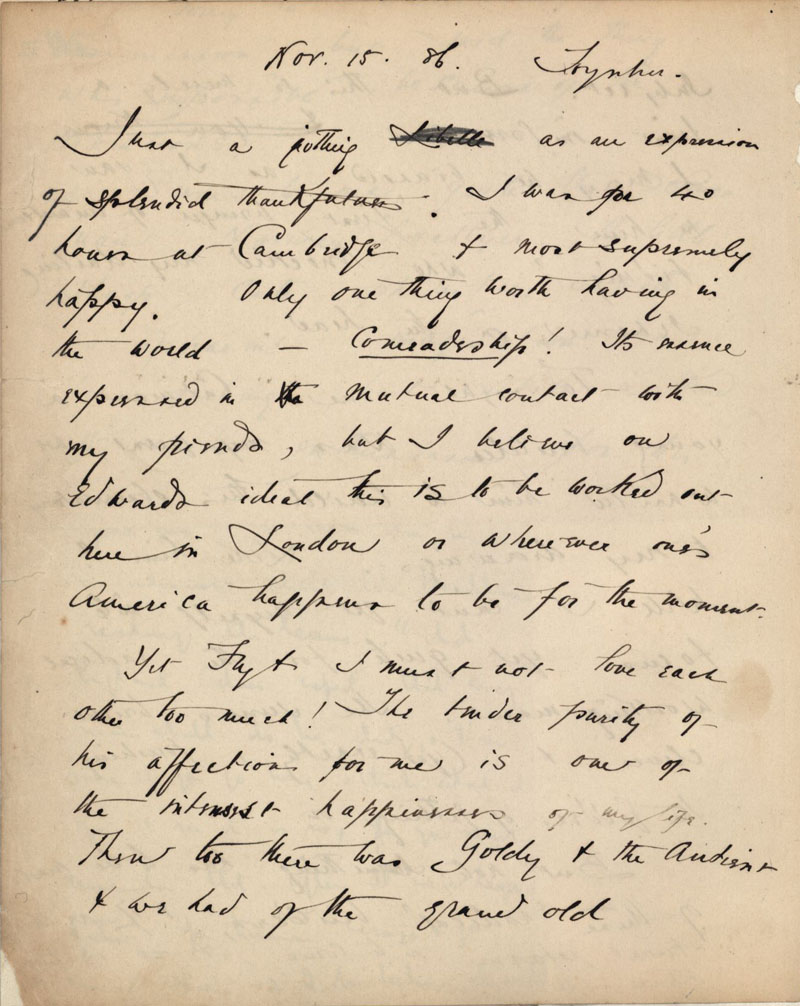 Nov. 15. 86. Toynbee.
Just a jotting as an expression
of splendid thankfulness. I was for 40
hours at Cambridge & most supremely
happy. Only one thing worth having in
the world — Comradeship! Its essence
expressed in the mutual contact with
my friends, but I believe on
Edwards ideal this is to be worked out
here in London or wherever one's
America happens to be for the moment.
Yet Fry & I must not love each
other too much! The tender purity of
his affection for me is one of
the intensest happinesses of my life.
Then too there was Goldy & the
& we had of the grand old